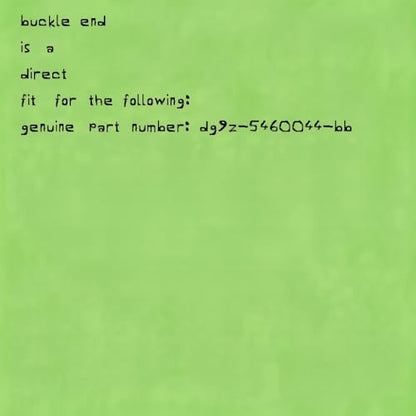 buckle end
is a
direct
fit for the following:
genuine part number: dg9z-5460044-bb